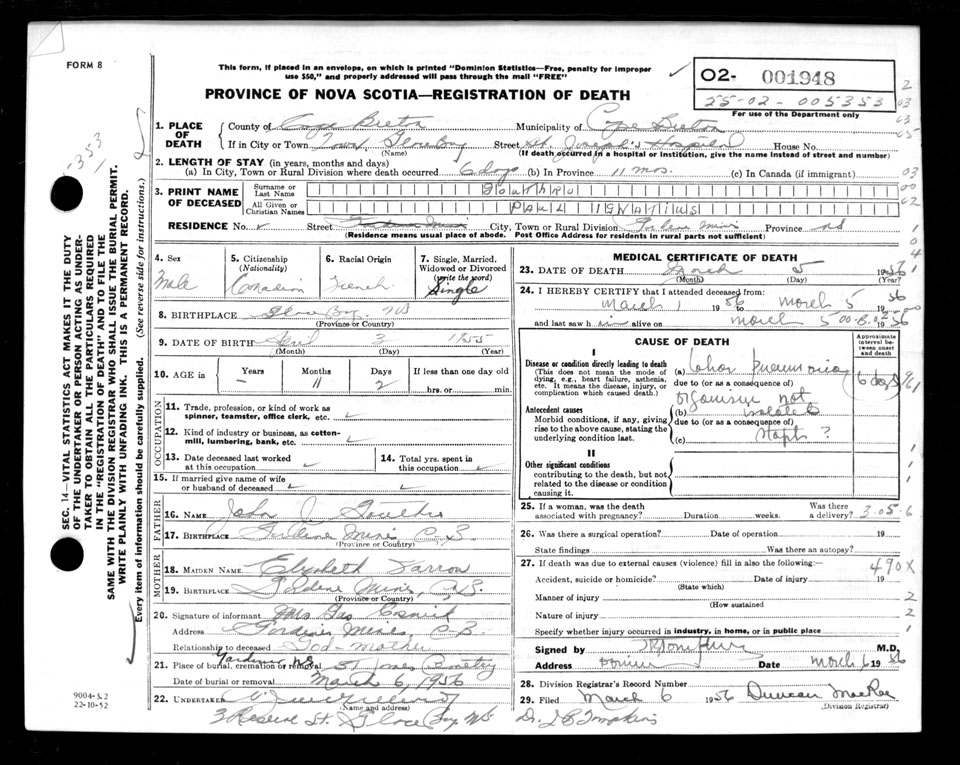 FORM 8
This form, if placed in an envelope, on which is printed "Dominion Statistics—Free, penalty for improper
use $50," and properly addressed will pass through the mail "FREE"
PROVINCE OF NOVA SCOTIA—REGISTRATION OF DEATH
O2- 001948
25-02-005353
For use of the Department only
SEC. 14—VITAL STATISTICS ACT MAKES IT THE DUTY
OF THE UNDERTAKER OR PERSON ACTING AS UNDER-
TAKER TO OBTAIN ALL THE PARTICULARS REQUIRED
IN THE "REGISTRATION OF DEATH" AND TO FILE THE
SAME WITH THE DIVISION REGISTRAR WHO SHALL ISSUE THE BURIAL PERMIT.
WRITE PLAINLY WITH UNFADING INK. THIS IS A PERMANENT RECORD.
Every item of information should be carefully supplied. (See reverse side for instructions.)
1. PLACE OF DEATH
County of Cape Breton Municipality of Cape Breton
If in City or Town Town, Glace Bay Street St. Joseph's Hospital House No.
(Name) (If death occurred in a hospital or institution, give the name instead of street and number)
2. LENGTH OF STAY (in years, months and days)
(a) In City, Town or Rural Division where death occurred 6 days (b) In Province 11 mos. (c) In Canada (if immigrant)
3. PRINT NAME OF DECEASED
Surname or Last Name
All Given or Christian Names PAUL IGNATIUS
RESIDENCE No. Street City, Town or Rural Division Province NS
(Residence means usual place of abode. Post Office Address for residents in rural parts not sufficient)
4. Sex Male
5. Citizenship (Nationality) Canadian
6. Racial Origin French
7. Single, Married, Widowed or Divorced (write the word) Single
8. BIRTHPLACE Glace Bay, NS
(Province or Country)
9. DATE OF BIRTH April 3 1955
(Month) (Day) (Year)
10. AGE in Years - Months 11 Days 2 If less than one day old
hrs. or min.
OCCUPATION
11. Trade, profession, or kind of work as
spinner, teamster, office clerk, etc.
12. Kind of industry or business, as cotton-
mill, lumbering, bank, etc.
13. Date deceased last worked
at this occupation
14. Total yrs. spent in
this occupation
15. If married give name of wife
or husband of deceased
FATHER
16. NAME John J.
17. BIRTHPLACE
(Province or Country)
MOTHER
18. MAIDEN NAME Elizabeth
19. BIRTHPLACE
(Province or Country)
20. Signature of informant Mrs
Address Mines, C.B.
Relationship to deceased God-mother
21. Place of burial, cremation or removal
Date of burial or removal March 6, 1956
22. UNDERTAKER
(Name and address)
3 Reserve St. Glace Bay NS
9004-3.2
22-10-52
MEDICAL CERTIFICATE OF DEATH
23. DATE OF DEATH March 5 1956
(Month) (Day) (Year)
24. I HEREBY CERTIFY that I attended deceased from:
March 1 1956 to March 5 1956
and last saw h im alive on March 5 1956
CAUSE OF DEATH
Approximate interval between onset and death
I
Disease or condition directly leading to death
(This does not mean the mode of
dying, e.g., heart failure, asthenia,
etc. It means the disease, injury, or
complication which caused death.)
(a) Lobar Pneumonia 6 days
due to (or as a consequence of)
organism not
Antecedent causes
Morbid conditions, if any, giving
rise to the above cause, stating the
underlying condition last.
(b) isolated
due to (or as a consequence of)
(c) Staph ?
II
Other significant conditions
contributing to the death, but not
related to the disease or condition
causing it.
25. If a woman, was the death
associated with pregnancy? Duration weeks. Was there
a delivery? 3.05.6
26. Was there a surgical operation? Date of operation 19
State findings Was there an autopsy?
27. If death was due to external causes (violence) fill in also the following: 490X
Accident, suicide or homicide? Date of injury 19
(State which)
Manner of injury
(How sustained)
Nature of injury
Specify whether injury occurred in industry, in home, or in public place
Signed by M.D.
Address Date March 6 1956
28. Division Registrar's Record Number
29. Filed March 6 1956 Duncan MacRae
(Division Registrar)